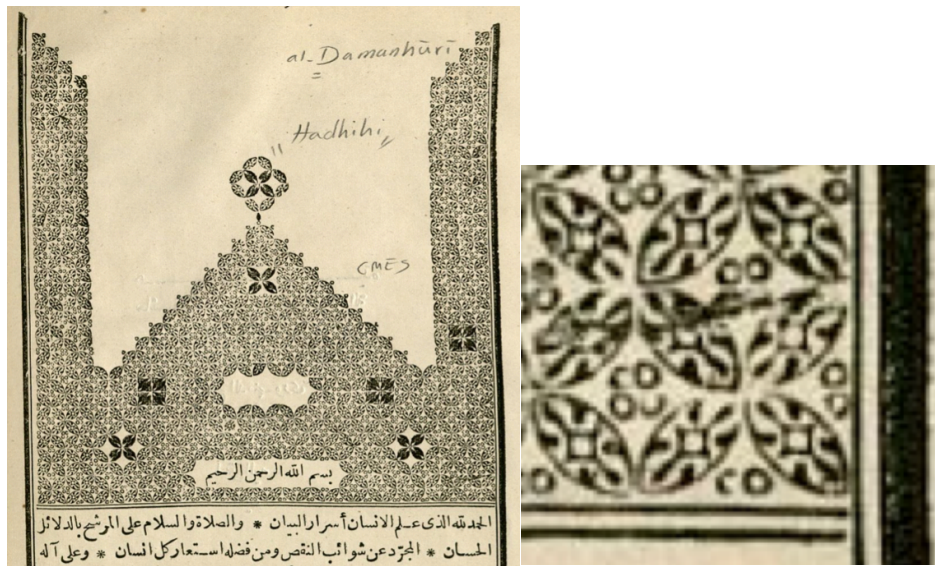 al-Damanhūrī
"Hadhihi"
CMES
بسم الله الرحمن الرحيم
الحمد لله الذى علم الانسان أسرار البيان * والصلاة والسلام على المرشح بالدلائل
الحسان * المجرّد عن شوائب النقص ومن فضله استعار كل انسان * وعلى آله